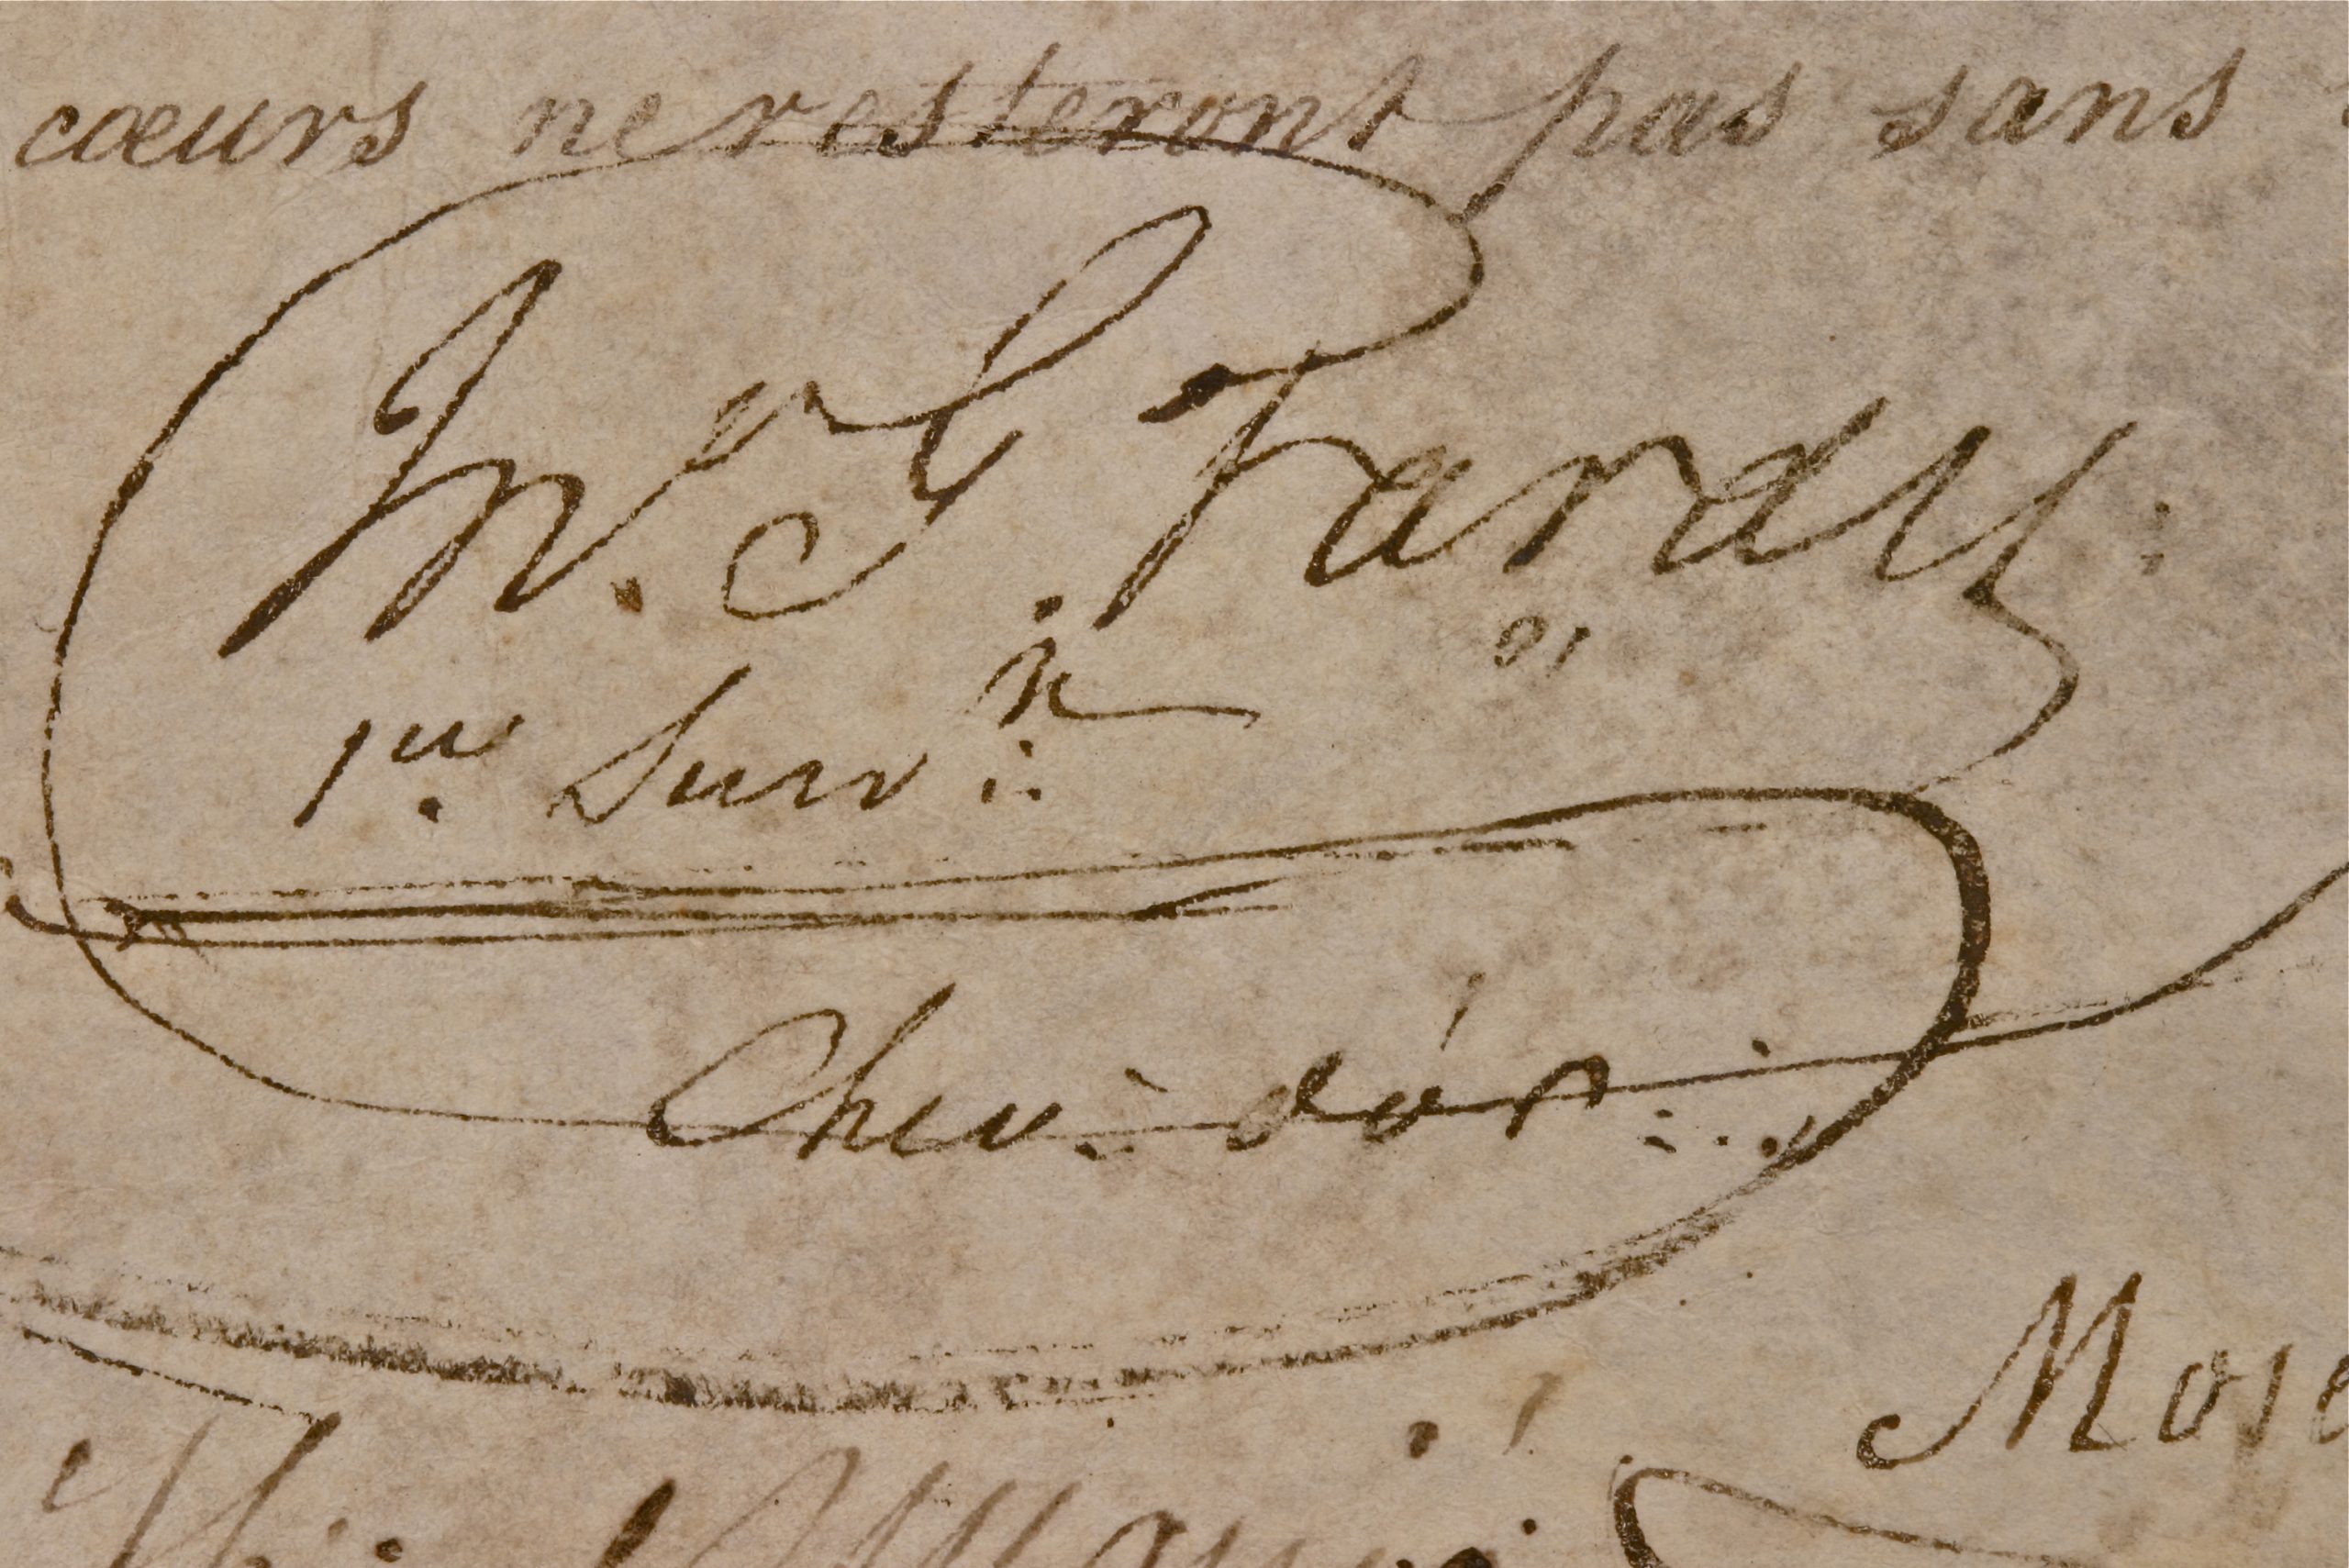 cœurs ne resteront pas sans
M. G. Tardy:
1er Surv∴
Chev∴ d'Or∴
Mose